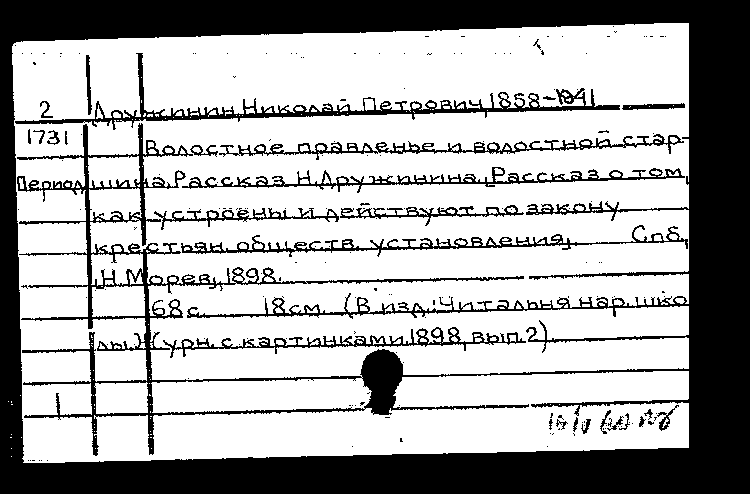 2 Дружинин, Николай Петрович, 1858-1941
1731 Волостное правленье и волостной стар-
Период шина. Рассказ Н. Дружинина. [Рассказ о том,
как устроены и действуют по закону
крестьян. обществ. установления]. Спб,
[Н. Морев], 1898.
68 с. 18 см. (В изд.: Читальня нар. шко
лы.) (журн. с картинками. 1898, вып. 2).
1